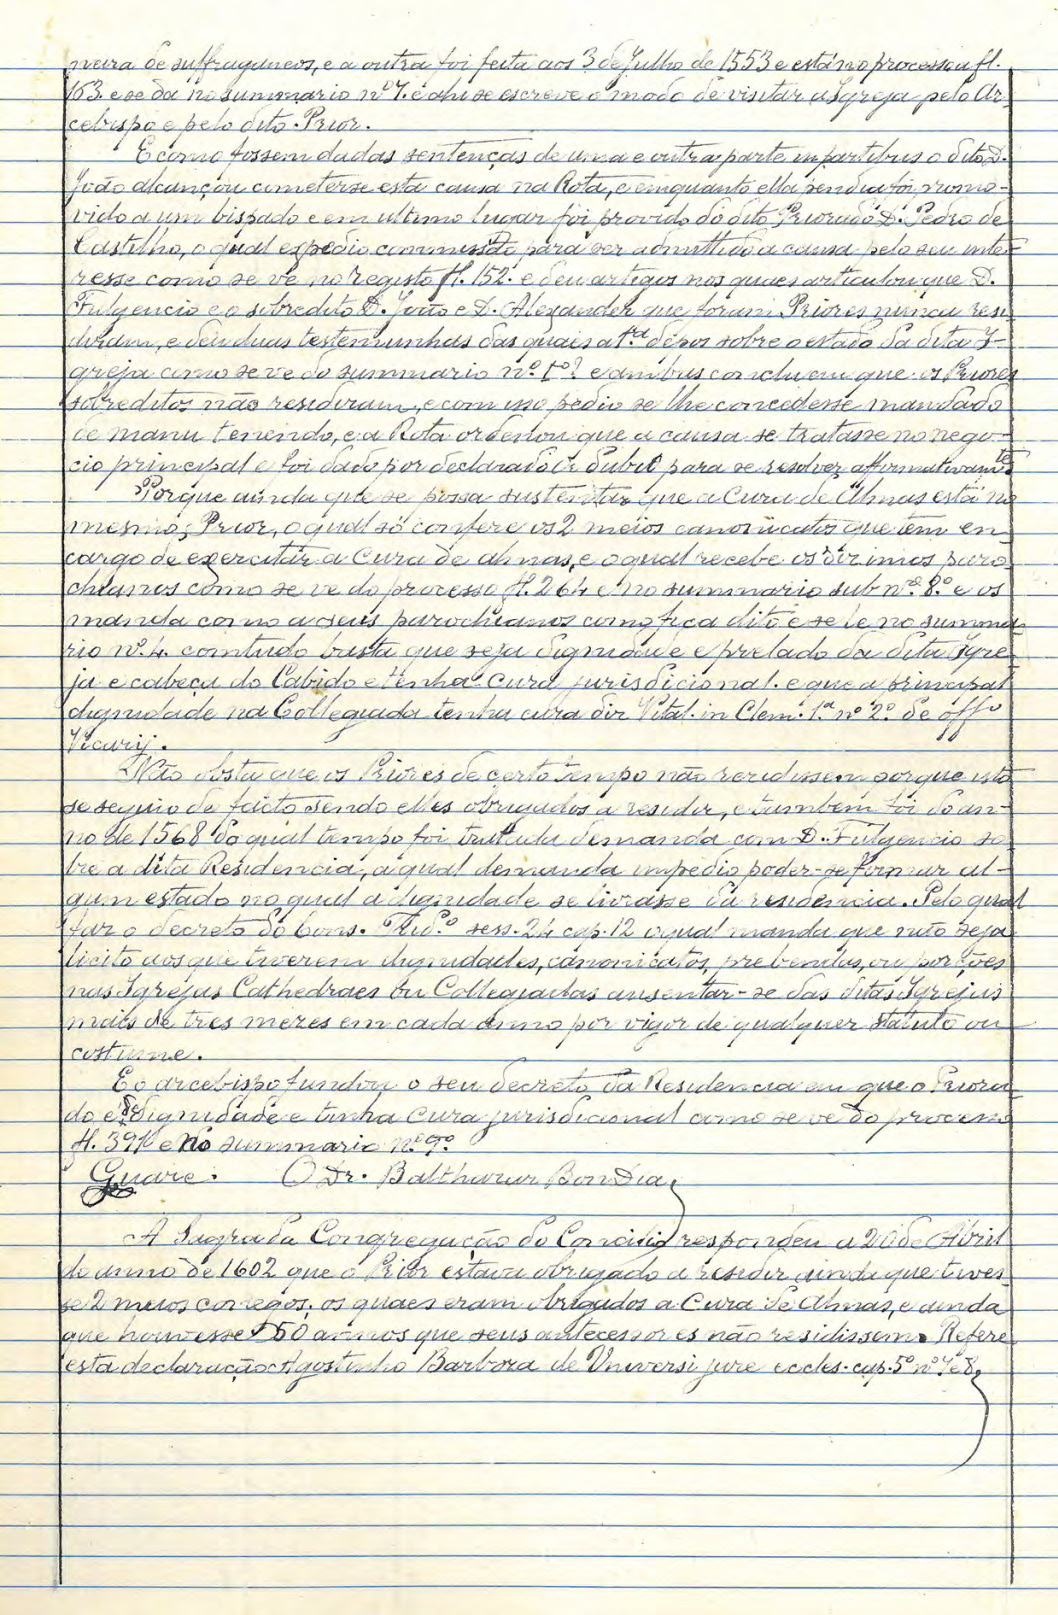 neira de suffraganeos, e a outra foi feita aos 3 de Julho de 1553 e está no processo a fl.
163. e se da no summario nº 7. e ahi se escreve o modo de visitar a Igreja pelo Ar-
cebispo e pelo dito Prior.
E como fossem dadas sentenças de uma e outra parte in partibus o dito D.
João alcançou cometerse esta causa na Rota, e emquanto ella pendia foi promo-
vido a um bispado e em ultimo lugar foi provido do dito Priorado D. Pedro de
Castilho, o qual expedio commissão para ser admittido a causa pelo seu inte-
resse como se vê no registo fl. 152. e deu artigos nos quaes articulou que D.
Fulgencio e o sobredito D. João e D. Alexander que foram Priores nunca resi-
diram, e deu duas testemunhas das quaes a 1ª depos sobre o estado da dita I-
greja como se ve do summario nº e ambas concluem que os Priores
sobreditos não residiram, e com isso pedio se lhe concedesse mandado
de manu tenendo, e a Rota ordenou que a causa se tratasse no nego-
cio principal e foi dado por declarado o dubio para se resolver affirmativamte
Porque ainda que se possa sustentar que a Cura de Almas está no
mesmo Prior, o qual só confere os 2 meios canonicatos que têm en-
cargo de exercitar a Cura de almas, e o qual recebe os dizimos paro-
chianos como se ve do processo fl. 264 e no summario sub nº 8º e os
manda como a seus parochianos como fica dito e se lê no summa-
rio nº 4. comtudo basta que seja dignidade e prelado da dita Igre-
ja e cabeça do Cabido e tenha Cura jurisdicional. e que a principal
dignidade na Collegiada tenha cura dir Vital. in Clem. 1.ª nº 2º de offº
Vicarij.
Não obsta que os Priores de certo tempo não residissem porque isto
se seguio de facto sendo elles obrigados a residir, e tambem foi do an-
no de 1568 do qual tempo foi tratada demanda com D. Fulgencio so-
bre a dita Residencia, a qual demanda impedio poder-se formar al-
gum estado no qual a dignidade se livrasse da residencia. Pelo qual
faz o decreto do Cons. Trid.º sess. 24 cap. 12 o qual manda que não seja
licito aos que tiverem dignidades, canonicatos, prebendas, ou porções
nas Igrejas Cathedraes ou Collegiadas ausentar-se das ditas Igrejas
mais de tres mezes em cada anno por vigor de qualquer statuto ou
costume.
E o arcebispo fundou o seu decreto da Residencia em que o Priora-
do é Dignidade e tinha Cura jurisdicional como se ve do processo
fl. e no summario nº 9º
O Dr. Balthazar Bon Dia,
A Sagrada Congregação do Concilio respondeu a 20 de Abril
do anno de 1602 que o Prior estava obrigado a residir ainda que tives-
se 2 meios conegos, os quaes eram obrigados a Cura de Almas, e ainda
que houvesse 50 annos que seus antecessores não residissem. Refere
esta declaração Agostinho Barboza de Universi jure eccles. cap. 5º nº 7 e 8,